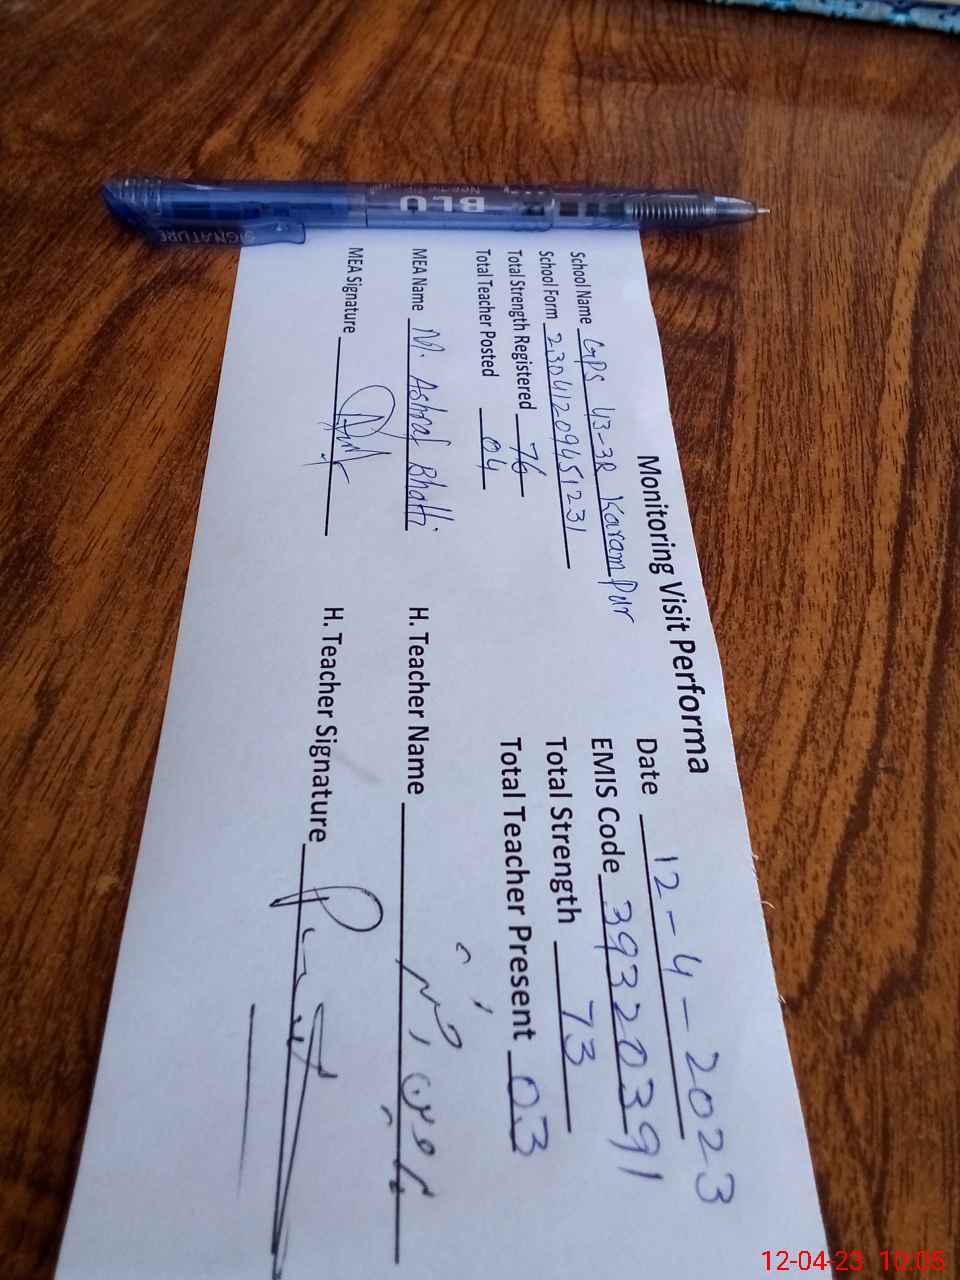 Monitoring Visit Performa
School Name GPS 43-3R Karam Pur
Date 12-4-2023
School Form 23041209451231
EMIS Code 39320391
Total Strength Registered 76
Total Strength 73
Total Teacher Posted 04
Total Teacher Present 03
MEA Name M. Ashraf Bhatti
H. Teacher Name
MEA Signature
H. Teacher Signature
BLU
SIGNATURE
12-04-23 10:05